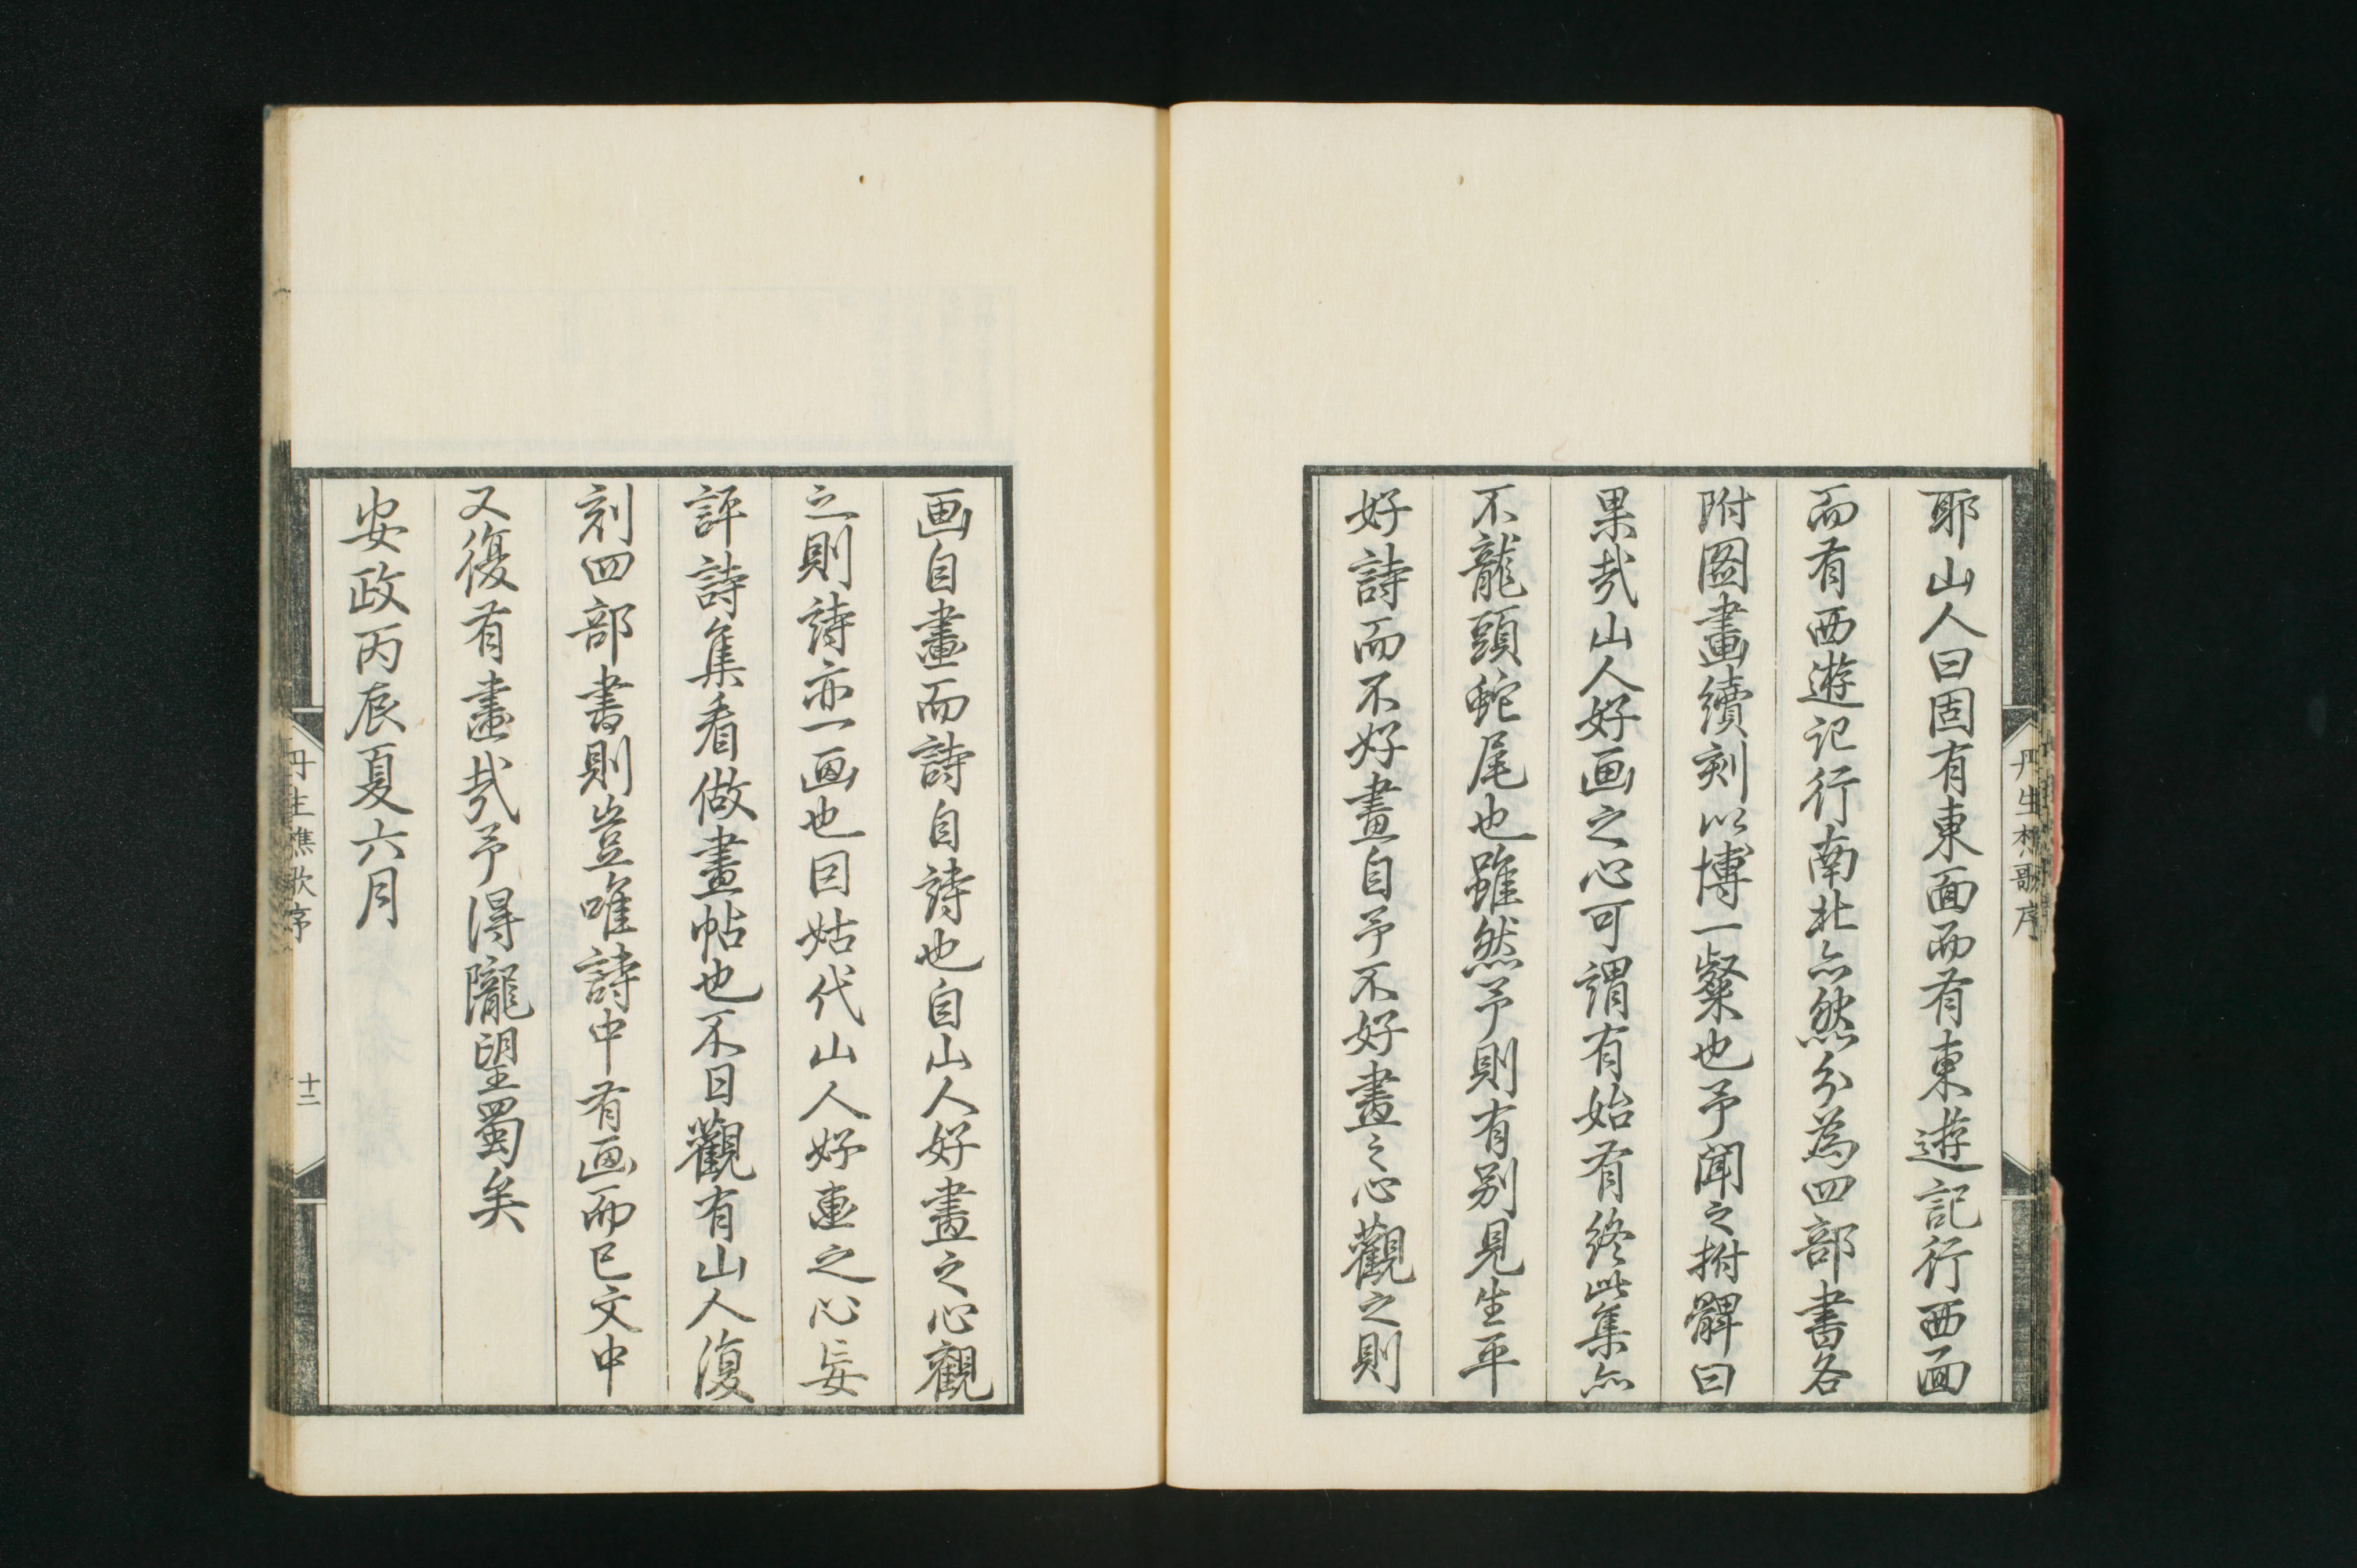 耶山人曰固有東面而有東遊記行西面
而有西遊記行南北亦然分為四部書各
附圖畫續刻以博一粲也予聞之拊髀曰
果哉山人好画之心可謂有始有終此集亦
不龍頭蛇尾也雖然予則有別見生平
好詩而不好畫自予不好畫之心觀之則
画自畫而詩自詩也自山人好畫之心觀
之則詩亦一画也因姑代山人好畫之心妄
評詩集看做畫帖也不日觀有山人復
刻四部書則豈唯詩中有画而已文中
又復有畫哉予得隴望蜀矣
安政丙辰夏六月
丹生樵歌序
丹生樵歌序
十二